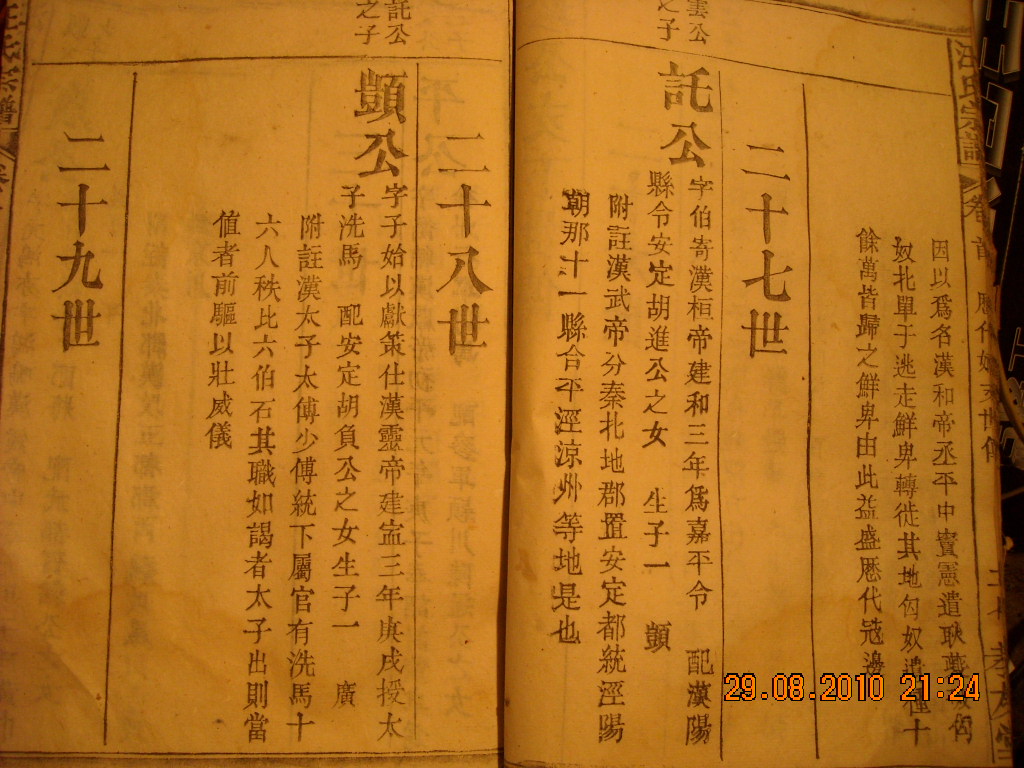 雲公
之子
因以爲名漢和帝丞平中竇憲遣耿夔
奴北單于逃走鮮卑轉徙其地匈奴遺種十
餘萬皆歸之鮮卑由此益盛歷代冦邊
二十七世
託公
字伯寄漢桓帝建和三年爲嘉平令 配漢陽
縣令安定胡進公之女 生子一 顗
附註漢武帝分秦北地郡置安定都統涇陽
朝那十一縣合平涇涼州等地是也
託公
之子
二十八世
顗公
字子始以獻策仕漢靈帝建寍三年庚戌授太
子洗馬 配安定胡負公之女生子一 廣
附註漢太子太傅少傅統下屬官有洗馬十
六人秩比六伯石其職如謁者太子出則當
值者前驅以壯威儀
二十九世
汪氏宗譜
29.08.2010 21:24